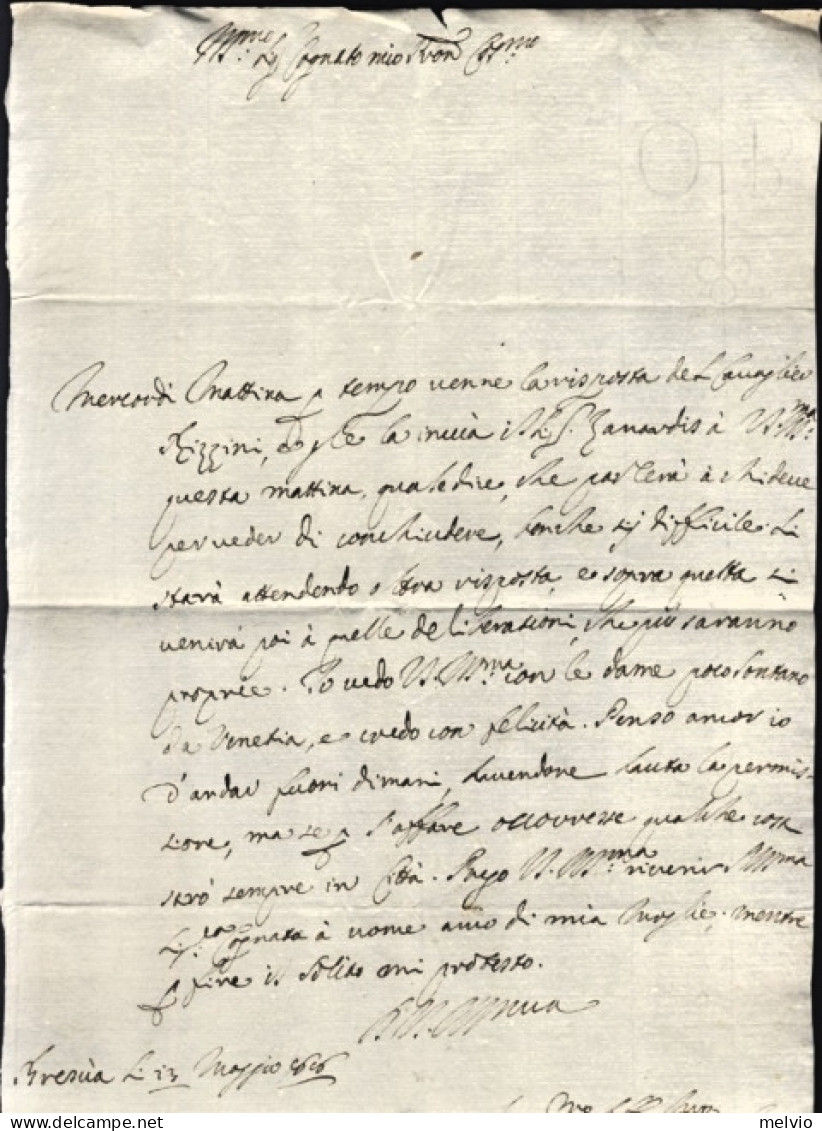 Ill.mo Sig. Cognato mio Pron Col.mo
Mercordì Mattina p tempo venne la risposta del Cavaglier
Rizzini, e la invia il Sig. Zanardis à V.S. Ill.ma
questa mattina, quale dice, che passerà à
per veder di conchiudere, benche sij difficile. Si
starà attendendo altra risposta, e sopra quella si
venirà poi à quelle deliberationi, che più saranno
proprie. Io vedo V.S. Ill.ma con le dame poco lontano
da Venetia, e credo con felicità. Penso ancor io
d'andar fuori dimani, havendone hauta la permis-
sione, ma se p l'affare occorresse qualche cosa
sarò sempre in Città. Prego V.S. Ill.ma riverir Ill.ma
Sig.ra Cognata à nome anco di mia Moglie, mentre
p fine il solito mi protesto.
Di V.S. Ill.ma
Brescia Li 13 Maggio
melvio
www.delcampe.net